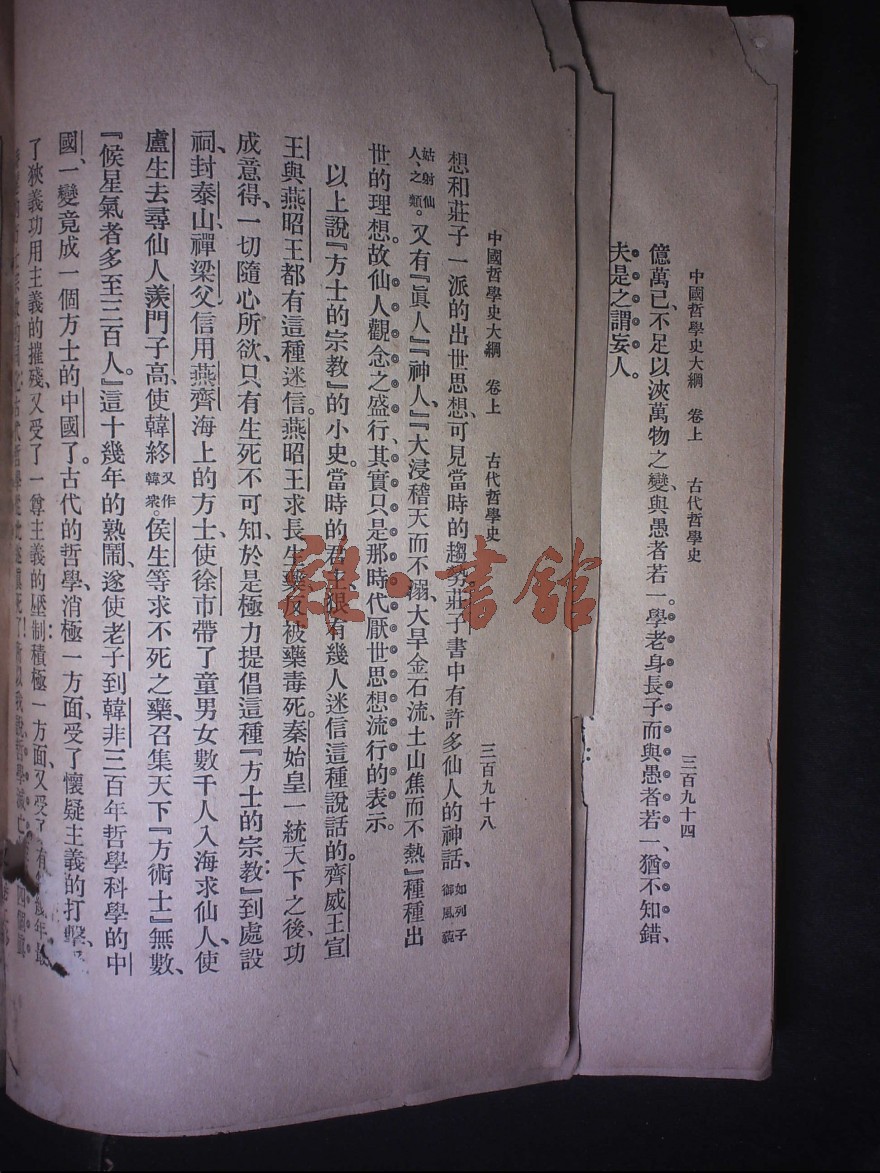 中國哲學史大綱　卷上　　古代哲學史　　三百九十四
億萬已、不足以浹萬物之變、與愚者若一。學老身長子而與愚者若一、猶不知錯、
夫是之謂妄人。
中國哲學史大綱　卷上　　古代哲學史　　三百九十八
想和莊子一派的出世思想、可見當時的趨勢。莊子書中有許多仙人的神話、如列子御風藐
姑射仙人、之類。又有『眞人』『神人』『大浸稽天而不溺、大旱金石流、土山焦而不熱』種種出
世的理想。故仙人觀念之盛行、其實只是那時代厭世思想流行的表示。
以上說『方士的宗教』的小史。當時的君主、很有幾人迷信這種說話的。齊威王宣
王與燕昭王都有這種迷信。燕昭王求長生藥、反被藥毒死。秦始皇一統天下之後、功
成意得、一切隨心所欲、只有生死不可知、於是極力提倡這種『方士的宗教』、到處設
祠、封泰山、禪梁父、信用燕齊海上的方士、使徐市帶了童男女數千人入海求仙人、使
盧生去尋仙人羨門子高、使韓終又作韓衆。侯生等求不死之藥、召集天下『方術士』無數、
『候星氣者多至三百人』。這十幾年的熱鬧、遂使老子到韓非三百年哲學科學的中
國、一變竟成一個方士的中國了。古代的哲學、消極一方面、受了懷疑主義的打擊、
了狹義功用主義的摧殘、又受了一尊主義的壓制；積極一方面、又受了
雜·書館